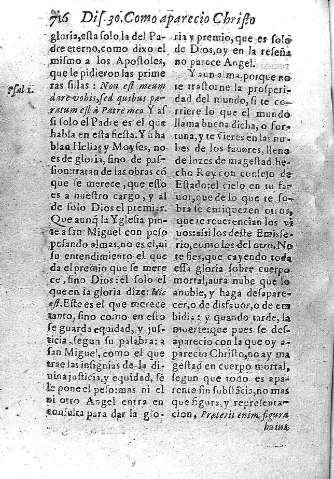 716 Dis. 30. Como aparecio Christo
gloria, esta solo la del Pa
dre eterno, como dixo el
mismo a los Apostoles,
que le pidieron las prime
ras sillas: Non est meum
dare vobis, sed quibus pa
ratum est à Patre meo. Y as
si solo el Padre es el que
habla en esta fiesta. Ya ha
blan Helias y Moyses, no
es de gloria, sino de pas-
sion: tratan de las obras cõ
que se merece, que esto
es a nuestro cargo, y al
de solo Dios el premiar.
Que aunq̃ la Yglesia pin-
te a san Miguel con peso
pesando almas, no es el, ni
su entendimiento el que
da el premio que se mere
ce, sino Dios: el solo el
que en la gloria dize: Hic
est. Este es el que merece
tanto, sino como en esto
se guarda equidad, y jus-
ticia, segun su palabra: a
san Miguel, como el que
trae las insignias de la di-
uina justicia, y equidad, se
le pone el peso: mas ni el
ni otro Angel entra en
consulta para dar la glo-
ria y premio, que es solo
de Dios, oy en la reseña
no parece Angel.
Y aun a ma, porque no
te trastorne la prosperi-
dad del mundo, si te co-
rriere lo que el mundo
llama buena dicha, o for-
tuna, y te vieres en las nu-
bes de los fauores, lleno
de luzes de magestad he-
cho Rey con consejo de
Estado: el cielo en tu fa-
uor, que de lo que te so-
bra se enriquezen otros,
que te reuerencian los vi
uos: assi los deste Emisfe-
rio, como los del otro. No
te fies, que cayendo toda
essa gloria sobre cuerpo
mortal, aura nube que lo
anuble, y haga desapare-
cer, o de disfauor, o de em
bidia: y quando tarde, la
muerte: que pues se des-
aparecio con la que oy a-
parecio Christo, no ay ma
gestad en cuerpo mortal,
segun que todo es apa-
rente sin substãcia, no mas
que figura, y representa-
cion, Præterit enim figura
huius